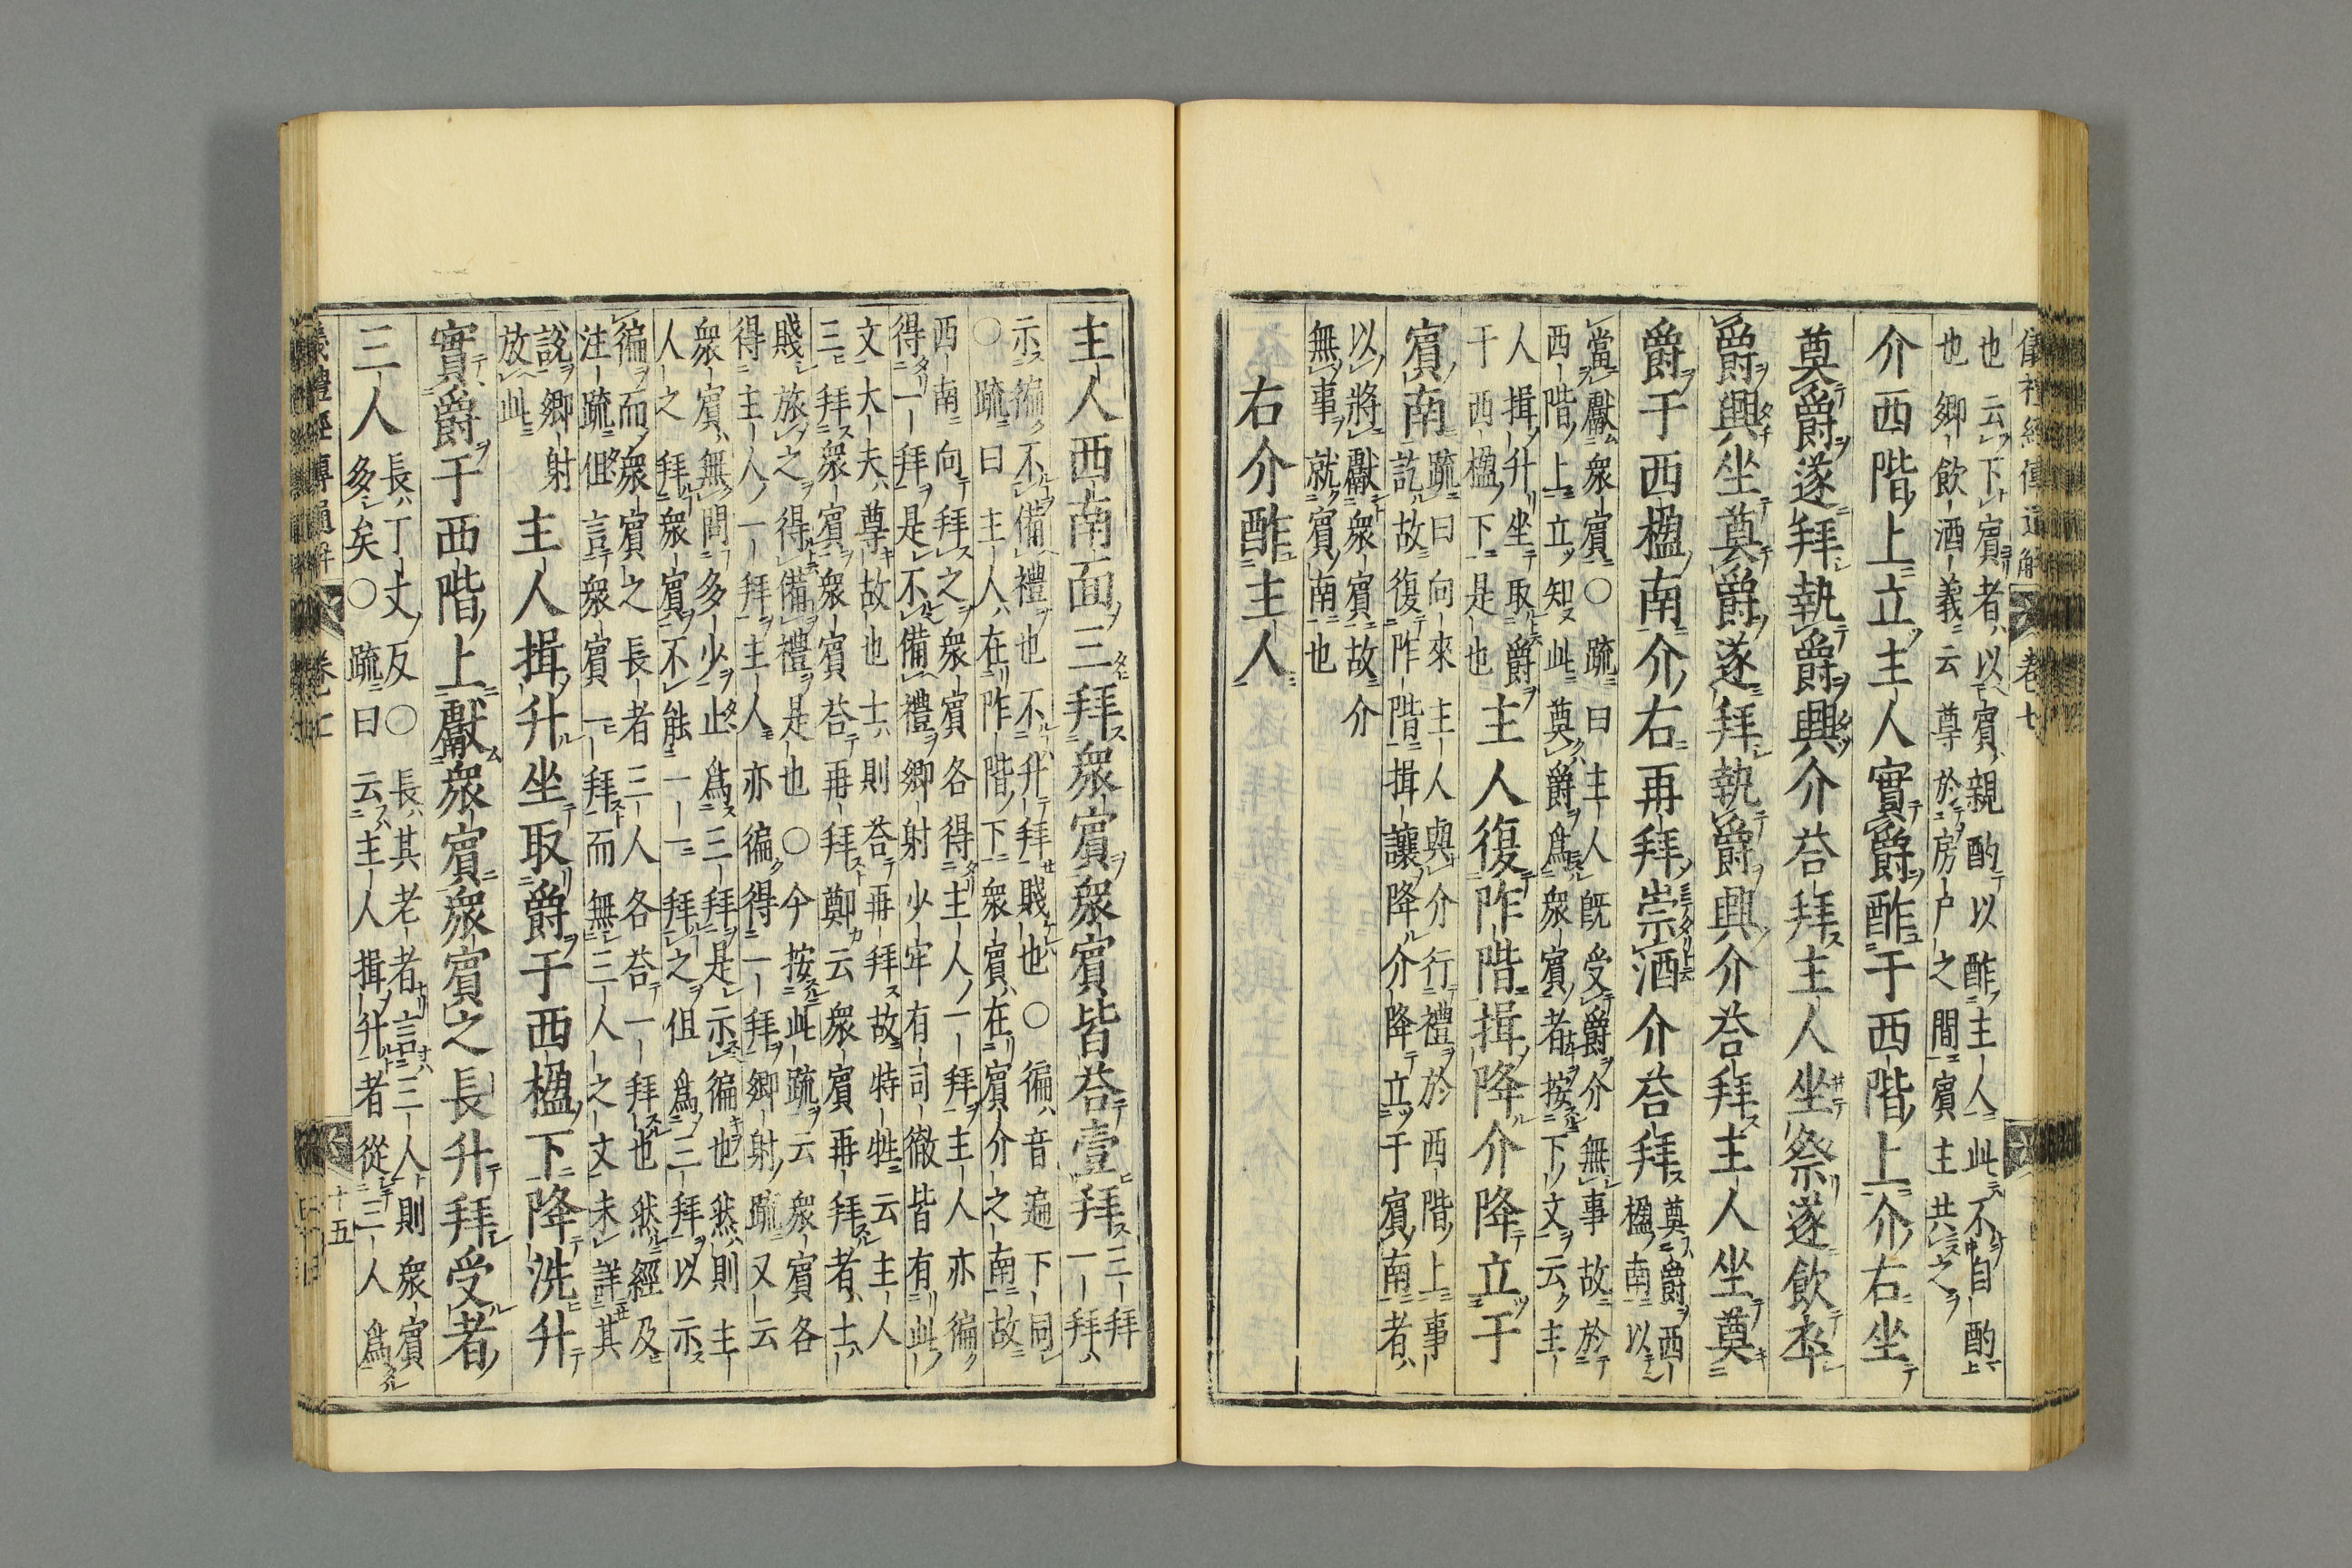 儀禮經傳通解 卷七
也云下賓者以賓親酌以酢主人此不自酌
也鄉飲酒義云尊於房户之間賓主共之
介西階上立主人實爵酢于西階上介右坐
奠爵遂拜執爵興介荅拜主人坐祭遂飲卒
爵興坐奠爵遂拜執爵興介荅拜主人坐奠
爵于西楹南介右再拜崇酒介荅拜
奠爵西
楹南以
當獻衆賓○疏曰主人既受爵介無事故於
西階上立知此奠爵爲衆賓者按下文云主
人揖升坐取爵
于西楹下是也
主人復阼階揖降介降立于
賓南
疏曰向來主人與介行禮於西階上事
訖故復阼階揖讓降介降立于賓南者
以將獻衆賓故介
無事就賓南也
右介酢主人
主人西南面三拜衆賓衆賓皆荅壹拜
三拜
一拜
示徧不備禮也不升拜賤也○徧音遍下同
○疏曰主人在阼階下衆賓在賓介之南故
西南向拜之衆賓各得主人一拜主人亦徧
得一拜是不備禮鄉射少牢有司徹皆有此
文大夫尊故也士則荅再拜故特牲云主人
三拜衆賓衆賓荅再拜鄭云衆賓再拜者士
賤旅之得備禮是也○今按此疏云衆賓各
得主人一拜主人亦徧得一拜鄉射疏又云
衆賓無問多少止爲三拜是示徧也然則主
人之拜衆賓不能一一拜之但爲三拜以示
徧而衆賓之長者三人各荅一拜也然經及
注疏但言衆賓一拜而無三人之文未詳其
說鄉射
放此
主人揖升坐取爵于西楹下降洗升
實爵于西階上獻衆賓衆賓之長升拜受者
三人
長丁丈反○長其老者言三人則衆賓
多矣○疏曰云主人揖升者從三人爲
儀禮經傳通解 卷七 十五